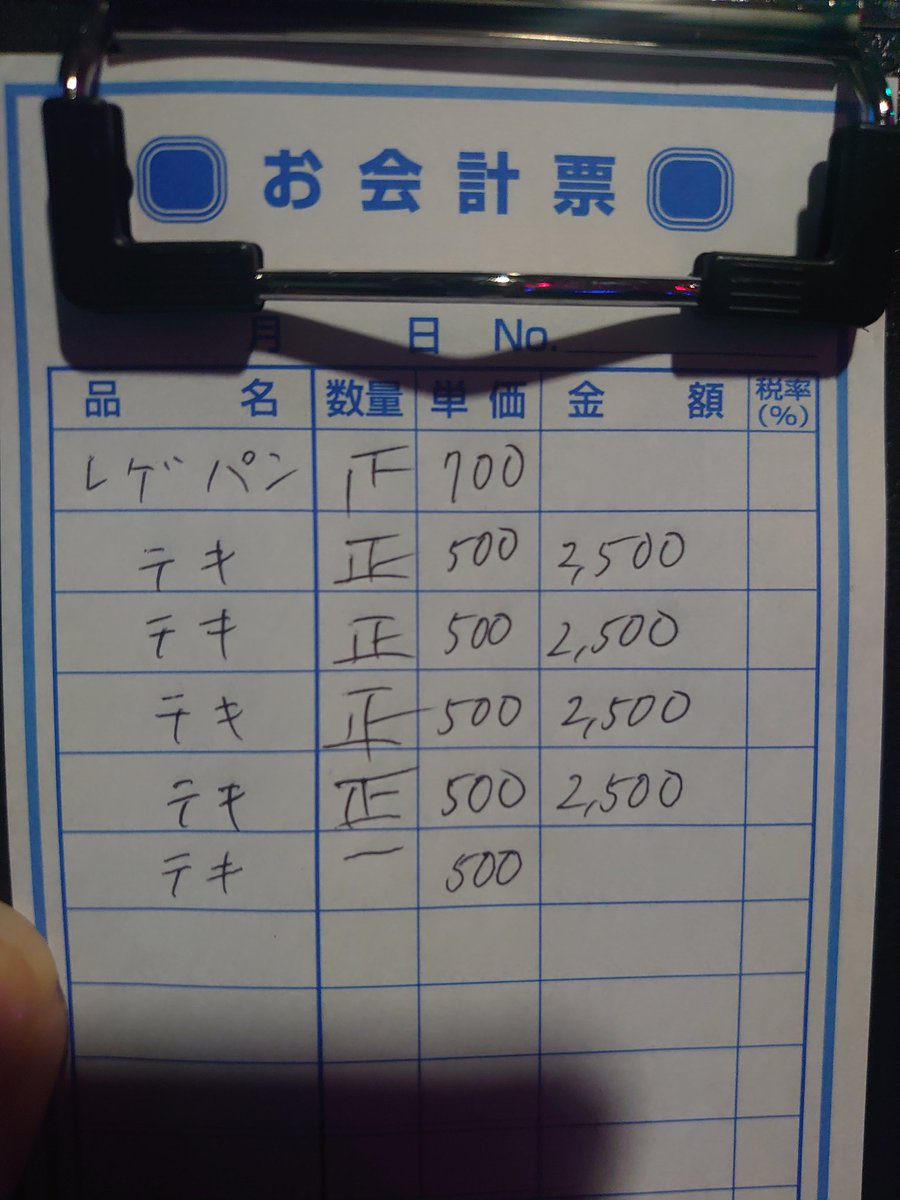 お会計票
月 日 No.
品名 数量 単価 金額 税率(%)
レゲパン 正 700
テキ 正 500 2,500
テキ 正 500 2,500
テキ 正 500 2,500
テキ 正 500 2,500
テキ 一 500